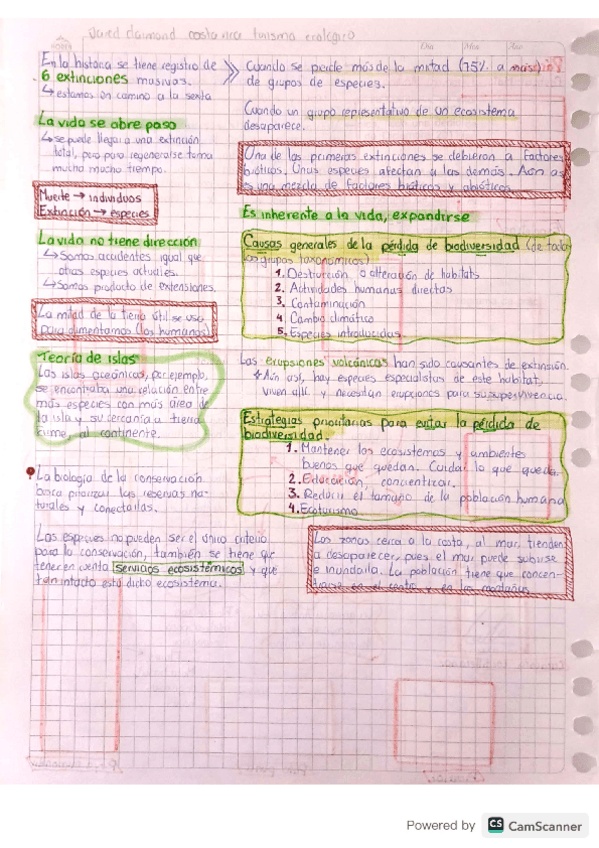 Jared diamond costa rica turismo ecológico
Día Mes Año
En la historia se tiene registro de
6 extinciones masivas.
↳ estamos en camino a la sexta
La vida se abre paso
↳ se puede llegar a una extinción
total, pero para regenerarse toma
mucho mucho tiempo.
Muerte → individuos
Extinción → especies
La vida no tiene dirección
↳ Somos accidentes igual que
otras especies actuales.
↳ Somos producto de extensiones.
La mitad de la tierra útil se usa
para alimentarnos (los humanos)
Teoría de islas
Las islas oceánicas, por ejemplo,
se encontraba una relación entre
más especies con más área de
la isla y su cercanía a tierra
firme, al continente.
La biología de la conservación
busca priorizar las reservas na-
turales y conectarlas.
Las especies no pueden ser el único criterio
para la conservación, también se tiene que
tener en cuenta servicios ecosistémicos y qué
tan intacto está dicho ecosistema.
Cuando se pierde más de la mitad (75% o más)
de grupos de especies.
Cuando un grupo representativo de un ecosistema
desaparece.
Una de las primeras extinciones se debieron a factores
bióticos. Unas especies afectan a las demás. Aún así
es una mezcla de factores bióticos y abióticos.
Es inherente a la vida, expandirse
Causas generales de la pérdida de biodiversidad (de todos
los grupos taxonómicos)
1. Destrucción o alteración de habitats
2. Actividades humanas directas
3. Contaminación
4. Cambio climático
5. Especies introducidas
Las erupsiones volcánicas han sido causantes de extinsión.
Aún así, hay especies especialistas de este habitat,
viven allí y necesitan erupciones para su supervivencia.
Estrategias prioritarias para evitar la pérdida de
biodiversidad.
1. Mantener los ecosistemas y ambientes
buenos que quedan. Cuidar lo que queda.
2. Educación, concientizar.
3. Reducir el tamaño de la población humana
4. Ecoturismo
Las zonas cerca a la costa, al mar, tienden
a desaparecer, pues el mar puede subirse
e inundarla. La población tiene que concen-
trarse en el centro y en las montañas
Powered by CS CamScanner